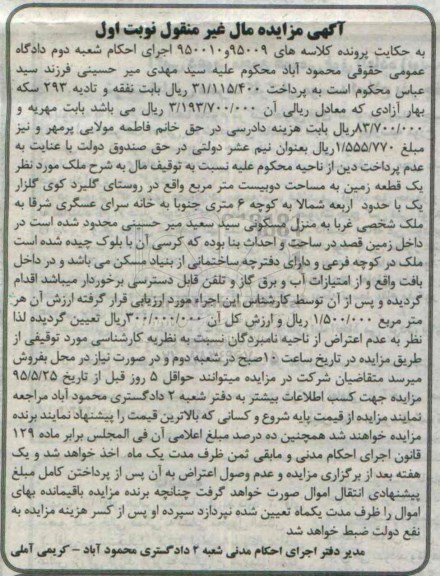 آگهی مزایده مال غیر منقول نوبت اول
به حکایت پرونده کلاسه های ۹۵۰۰۹و۹۵۰۰۱۰ اجرای احکام شعبه دوم دادگاه
عمومی حقوقی محمود آباد محکوم علیه سید مهدی میر حسینی فرزند سید
عباس محکوم است به پرداخت ۳۱/۱۱۵/۴۰۰ ریال بابت نفقه و تادیه ۲۹۳ سکه
بهار آزادی که معادل ریالی آن ۳/۱۹۳/۷۰۰/۰۰۰ ریال می باشد بابت مهریه و
۸۳/۷۰۰/۰۰۰ریال بابت هزینه دادرسی در حق خانم فاطمه مولایی پرمهر و نیز
مبلغ ۱/۵۵۵/۷۷۰ریال بعنوان نیم عشر دولتی در حق صندوق دولت با عنایت به
عدم پرداخت دین از ناحیه محکوم علیه نسبت به توقیف مال به شرح ملک مورد نظر
یک قطعه زمین به مساحت دوبیست متر مربع واقع در روستای گلیرد کوی گلزار
یک با حدود اربعه شمالا به کوچه ۶ متری جنوبا به خانه سرای عسگری شرقا به
ملک شخصی غربا به منزل مسکونی سید سعید میر حسینی محدود شده است در
داخل زمین قصد در ساخت و احداث بنا بوده که کرسی آن با بلوک چیده شده است
ملک در کوچه فرعی و دارای دفترچه ساختمانی از بنیاد مسکن می باشد و در داخل
بافت واقع و از امتیازات آب و برق گاز و تلفن قابل دسترسی برخوردار میباشد اقدام
گردیده و پس از آن توسط کارشناس این اجراء مورد ارزیابی قرار گرفته ارزش آن هر
متر مربع ۱/۵۰۰/۰۰۰ ریال و ارزش کل آن ۳۰۰/۰۰۰/۰۰۰ریال تعیین گردیده لذا
نظر به عدم اعتراض از ناحیه نامبردگان نسبت به نظریه کارشناسی مورد توقیفی از
طریق مزایده در تاریخ ساعت ۱۰صبح در شعبه دوم و در صورت نیاز در محل بفروش
میرسد متقاضیان شرکت در مزایده میتوانند حواقل ۵ روز قبل از تاریخ ۹۵/۵/۲۵
مزایده جهت کسب اطلاعات بیشتر به دفتر شعبه ۲ دادگستری محمود آباد مراجعه
نمایند مزایده از قیمت پایه شروع و کسانی که بالاترین قیمت را پیشنهاد نمایند برنده
مزایده خواهند شد همچنین ده درصد مبلغ اعلامی آن فی المجلس برابر ماده ۱۲۹
قانون اجرای احکام مدنی و مابقی ثمن ظرف مدت یک ماه اخذ خواهد شد و یک
هفته بعد از برگزاری مزایده و عدم وصول اعتراض به آن پس از پرداختن کامل مبلغ
پیشنهادی انتقال اموال صورت خواهد گرفت چنانچه برنده مزایده باقیمانده بهای
اموال را ظرف مدت یکماه تعیین شده نپردازد سپرده او پس از کسر هزینه مزایده به
نفع دولت ضبط خواهد شد
مدیر دفتر اجرای احکام مدنی شعبه ۲ دادگستری محمود آباد - کریمی آملی